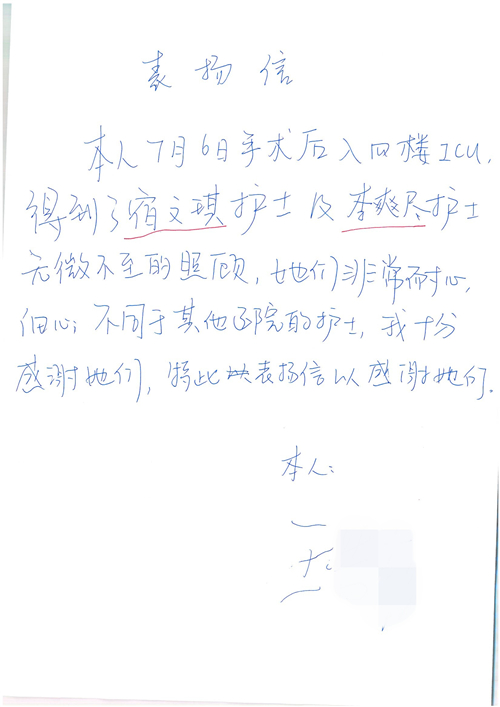 表扬信
本人7月6日手术后入四楼ICU,
得到了宿文琪护士及李爽尽护士
无微不至的照顾,她们非常耐心,
细心;不同于其他医院的护士,我十分
感谢她们,特此以表扬信以感谢她们.
本人: